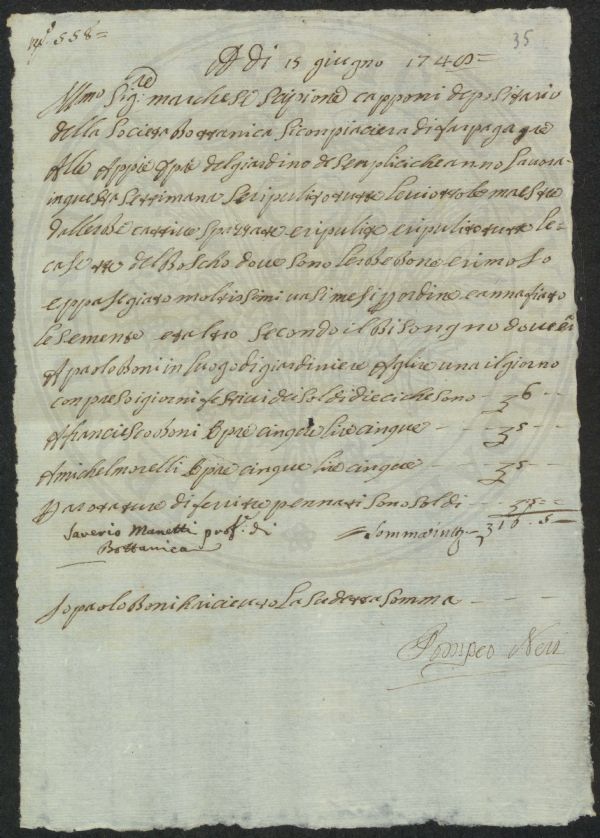 N.° 558=
35
A Dì 15 giugno 1748=
Jll.mo Sig.re marchese Scipione Capponi depositario
della Societa Bottanica Siconpiaciera di far pagare
Alle Appie Opre del giardino de Semplici che anno Lavora-
inquesta Settimana Seripulito tutte le viottole maestre
dallerbe cattive Spazzate eripulite eripulito tutte le
casette del Boscho dove sono lerbe bone erimoso
eppasegiato moltissimi vasi mesi p ordine eannafiato
le Semente ealtro Secondo il Bisongno dove
A paolo Boni in luogo di giardiniere A lire una il giorno
con preso i giorni festivi di Soldi dieci che sono - 3 6 - -
A franciesco boni Opre cinque lire cinque - 3 5 - -
A michel morelli Opre cinque lire cinque - 3 5 - -
P arotature di ferri tre pennati Sono Soldi - - 5 -
Saverio Manetti prof.e di
Bottanica
Somma in tto - 3 16 . 5 -
Jo paolo Boni o riceuto La Sudetta Somma - - -
Pompeo Neri